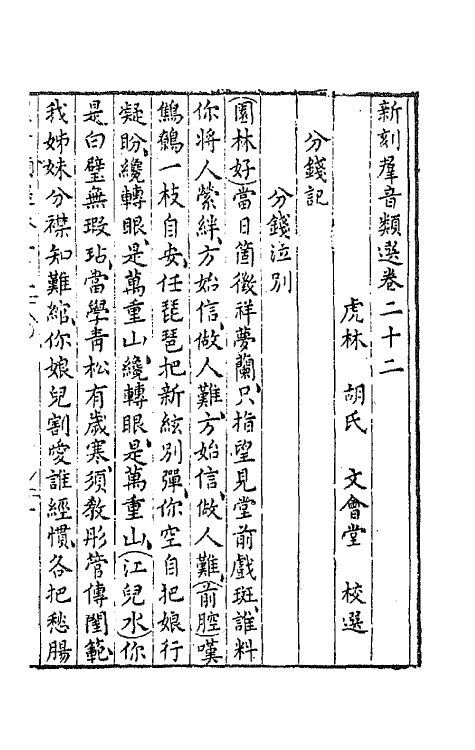 新刻羣音類選卷二十二
虎林　胡氏　文會堂　校選
分錢記
分錢泣別
（園林好）當日箇徵祥夢蘭只指望見堂前戲斑誰料
你將人縈絆方始信做人難方始信做人難（前腔）嘆
鷦鷯一枝自安任琵琶把新絃別彈你空自把娘行
凝盼纔轉眼是萬重山纔轉眼是萬重山（江兒水）你
是白璧無瑕玷當學青松有歲寒須教彤管傳閨範
我姊妹分襟知難綰你娘兒割愛誰經慣各把愁腸